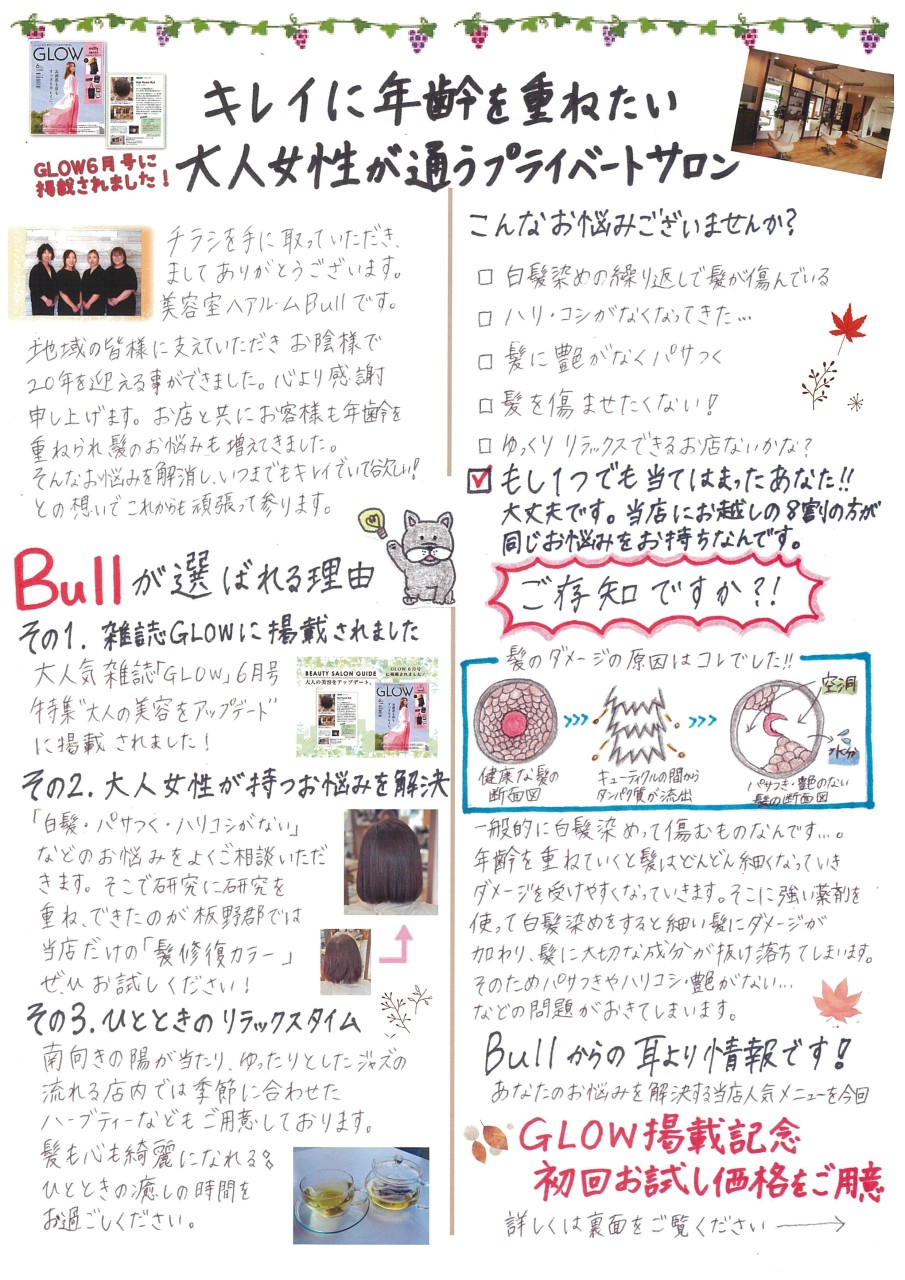 GLOW
GLOW6月号に
掲載されました！
キレイに年齢を重ねたい
大人女性が通うプライベートサロン
チラシを手に取っていただき、
ましてありがとうございます。
美容室ヘアルームBullです。
地域の皆様に支えていただきお陰様で
20年を迎える事ができました。心より感謝
申し上げます。お店と共にお客様も年齢を
重ねられ髪のお悩みも増えてきました。
そんなお悩みを解消し、いつまでもキレイでいて欲しい！
との想いでこれからも頑張って参ります。
Bullが選ばれる理由
その1.雑誌GLOWに掲載されました
大人気雑誌「GLOW」6月号
特集"大人の美容をアップデート"
に掲載されました！
BEAUTY SALON GUIDE
大人の美容をアップデート。
GLOW 6月号
に掲載されました！
GLOW
その2.大人女性が持つお悩みを解決
「白髪・パサつく・ハリコシがない」
などのお悩みをよくご相談いただ
きます。そこで研究に研究を
重ね、できたのが板野郡では
当店だけの「髪修復カラー」
ぜひお試しください！
その3.ひとときのリラックスタイム
南向きの陽が当たり、ゆったりとしたジャズの
流れる店内では季節に合わせた
ハーブティーなどもご用意しております。
髪も心も綺麗になれる
ひとときの癒しの時間を
お過ごしください。
こんなお悩みございませんか？
□ 白髪染めの繰り返しで髪が傷んでいる
□ ハリ・コシがなくなってきた…
□ 髪に艶がなくパサつく
□ 髪を傷ませたくない！
□ ゆっくりリラックスできるお店ないかな？
☑ もし1つでも当てはまったあなた!!
大丈夫です。当店にお越しの8割の方が
同じお悩みをお持ちなんです。
ご存知ですか？!
髪のダメージの原因はコレでした!!
健康な髪の
断面図
>>>
キューティクルの間から
タンパク質が流出
>>>
空洞
水分
パサつき・艶のない
髪の断面図
一般的に白髪染めって傷むものなんです…。
年齢を重ねていくと髪はどんどん細くなっていき
ダメージを受けやすくなっていきます。そこに強い薬剤を
使って白髪染めをすると細い髪にダメージが
加わり、髪に大切な成分が抜け落ちてしまいます。
そのためパサつきやハリコシ・艶がない…
などの問題がおきてしまいます。
Bullからの耳より情報です！
あなたのお悩みを解決する当店人気メニューを今回
GLOW掲載記念
初回お試し価格をご用意
詳しくは裏面をご覧ください →